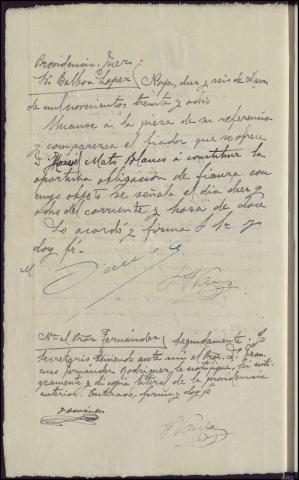 Providencia. Juez
Sr. Balboa Lopez / Noya, diez y seis de
de mil novecientos treinta y ocho
Unase á la pieza de su referencia
y comparezca el fiador que se ofrece
D. Mato Blanco á constituir la
oportuna obligación de fianza con
cuyo objeto se señala el dia diez y
ocho del corriente y hora de doce
Lo acordó y firma S. Sª y
doy fé.-
Non el Prior Fernández / Seguidamente yo
Secretario teniendo ante mi al Pror. D.
Fernández Rodriguez, le notifiqué, lei inte-
gramente y di copia literal de la providencia
anterior. Enterado, firma y doy fe